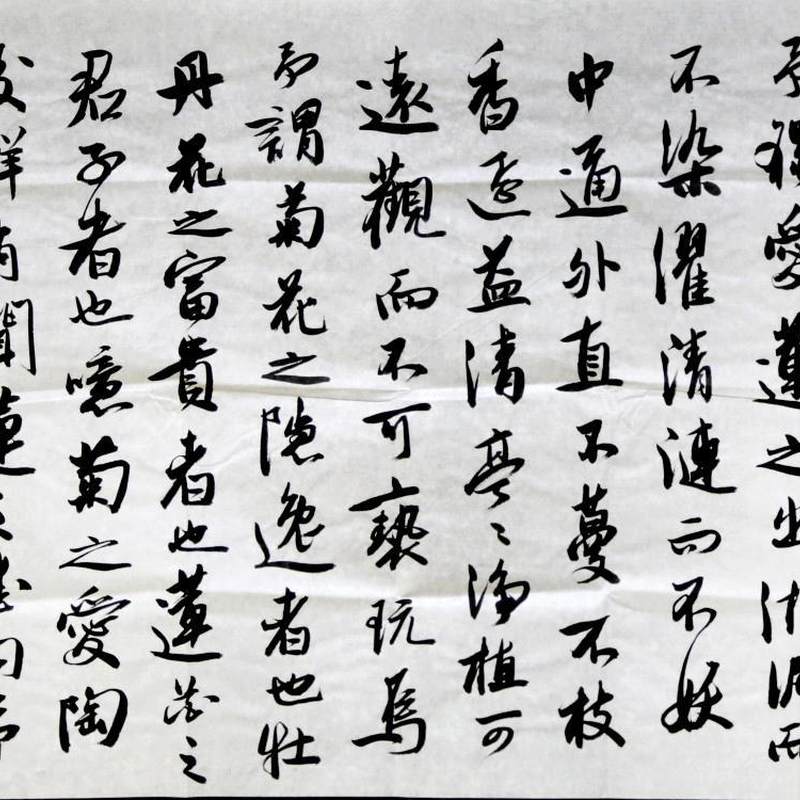 予獨愛蓮之出淤泥而
不染濯清漣而不妖
中通外直不蔓不枝
香遠益清亭〻淨植可
遠觀而不可褻玩焉
予謂菊花之隱逸者也牡
丹花之富貴者也蓮花之
君子者也噫菊之愛陶
後鮮有聞蓮之愛同予